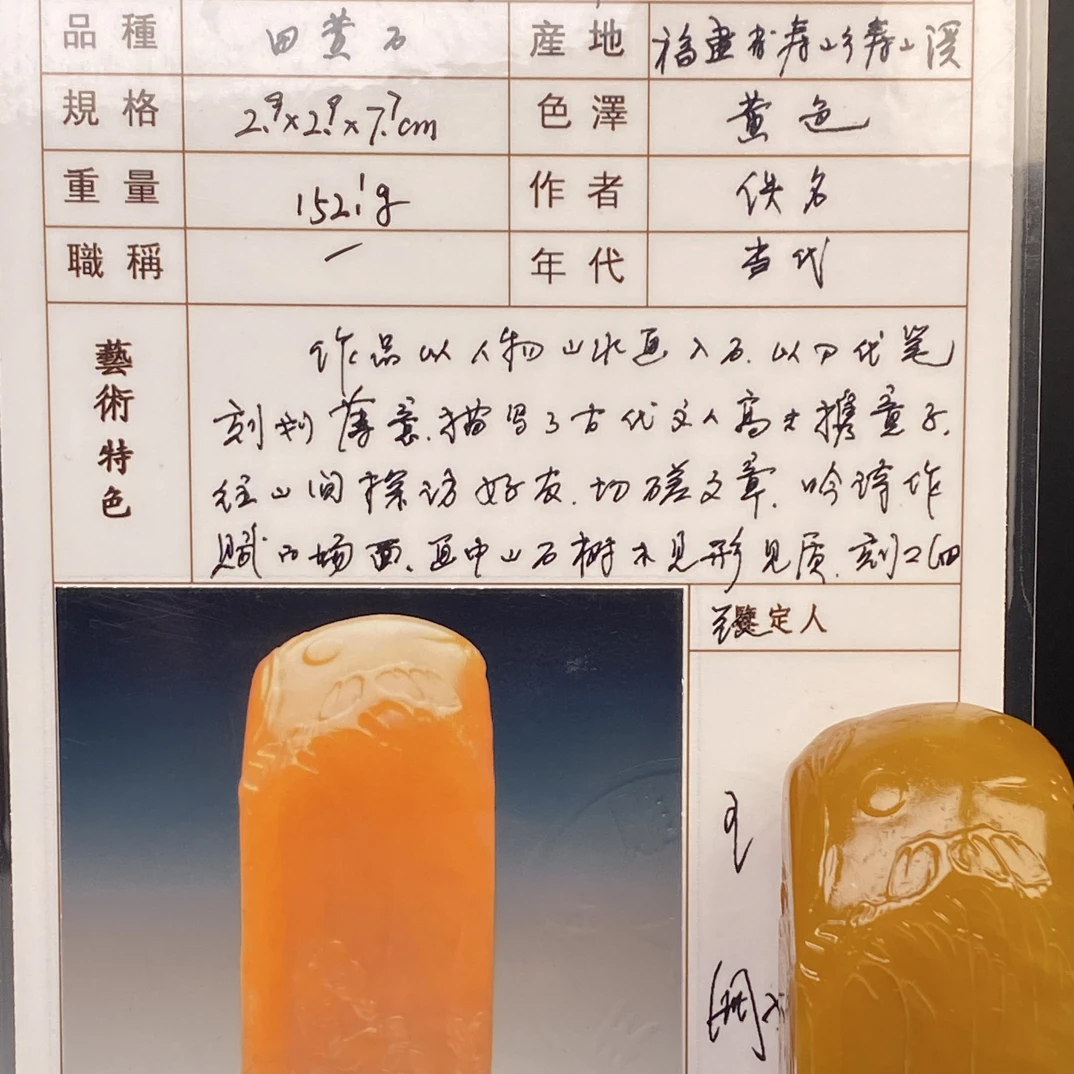 品種 田黄石 産地 福建省寿山乡寿山溪
規格 2.9×2.9×7.7cm 色澤 黄色
重量 152.1g 作者 佚名
職稱 一 年代 当代
藝術特色
作品以人物山水画入石.以刀代笔
刻划薄意.描写了古代文人高士携童子.
往山间探访好友.切磋文章.吟诗作
赋的场面.画中山石树木见形见质.刻工细
鑒定人